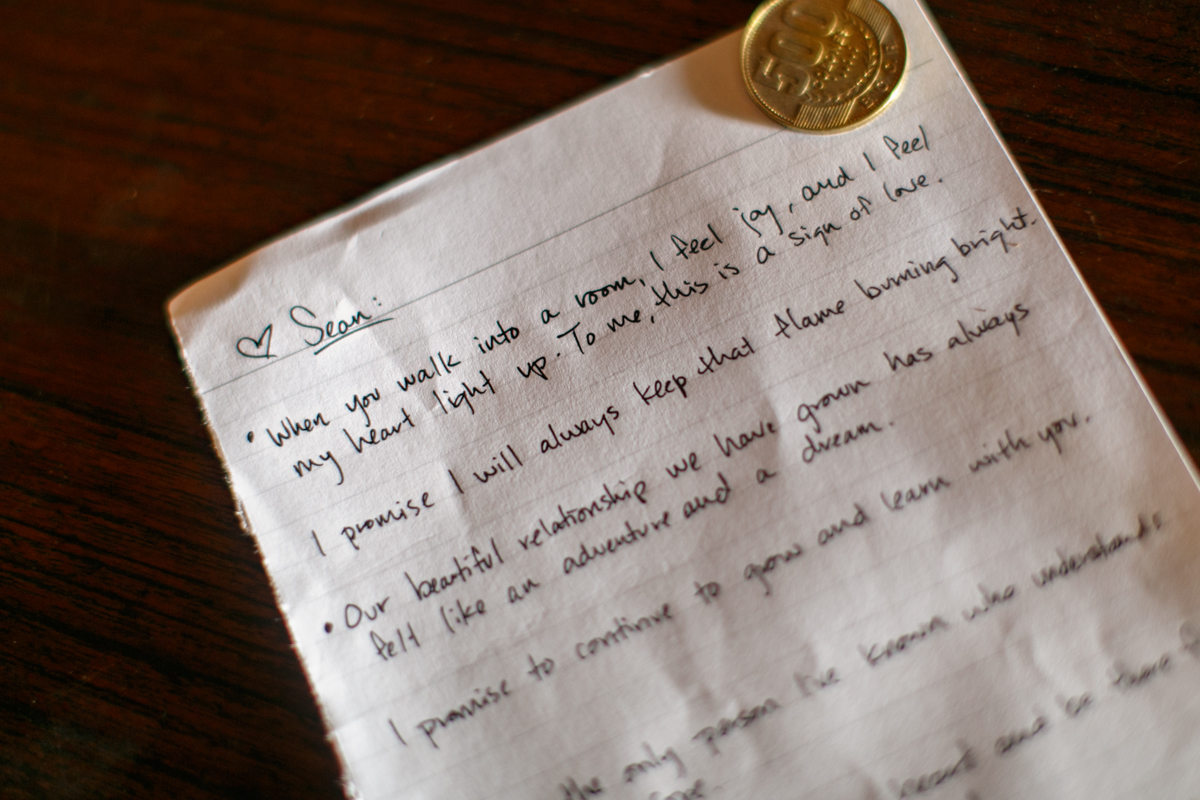 500
B.C.C.R.
♡ Sean:
• When you walk into a room, I feel joy, and I feel
my heart light up. To me, this is a sign of love.
I promise I will always keep that flame burning bright.
• Our beautiful relationship we have grown has always
felt like an adventure and a dream.
I promise to continue to grow and learn with you.
the only person I've known who understands
heart and be there